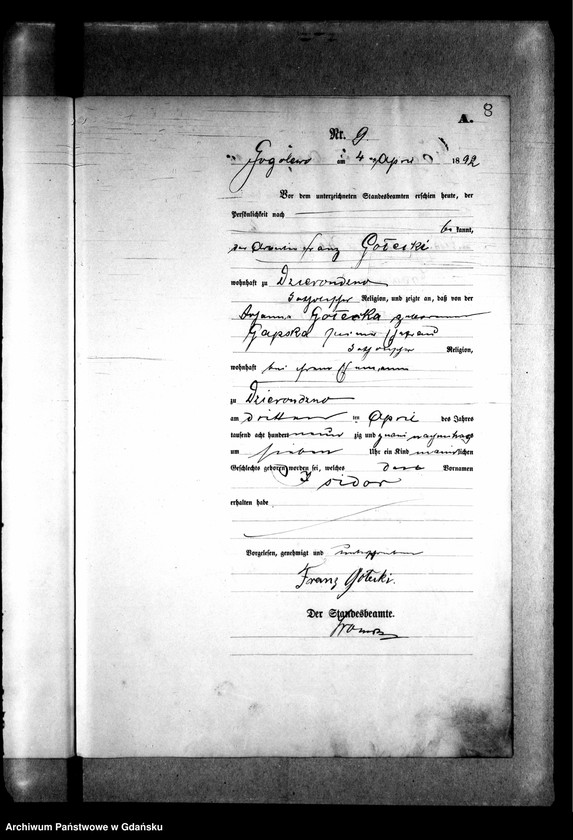 A. 8
Nr. 9.
Gogolewo am 4 ten April 1892
Vor dem unterzeichneten Standesbeamten erschien heute, der
Persönlichkeit nach
be kannt,
der Franz Gołecki
wohnhaft zu Dzierondzno
katholischer Religion, und zeigte an, daß von der
Johanna Gołecka geborenen
Gapska seiner Ehefrau
katholischer Religion,
wohnhaft bei ihrem Ehemanne
zu Dzierondzno
am dritten ten April des Jahres
tausend acht hundert neun zig und zwei nachmittags
um sieben Uhr ein Kind männlichen
Geschlechts geboren worden sei, welches den Vornamen
Isidor
erhalten habe
Vorgelesen, genehmigt und unterschrieben
Franz Gołecki.
Der Standesbeamte.
Archiwum Państwowe w Gdańsku